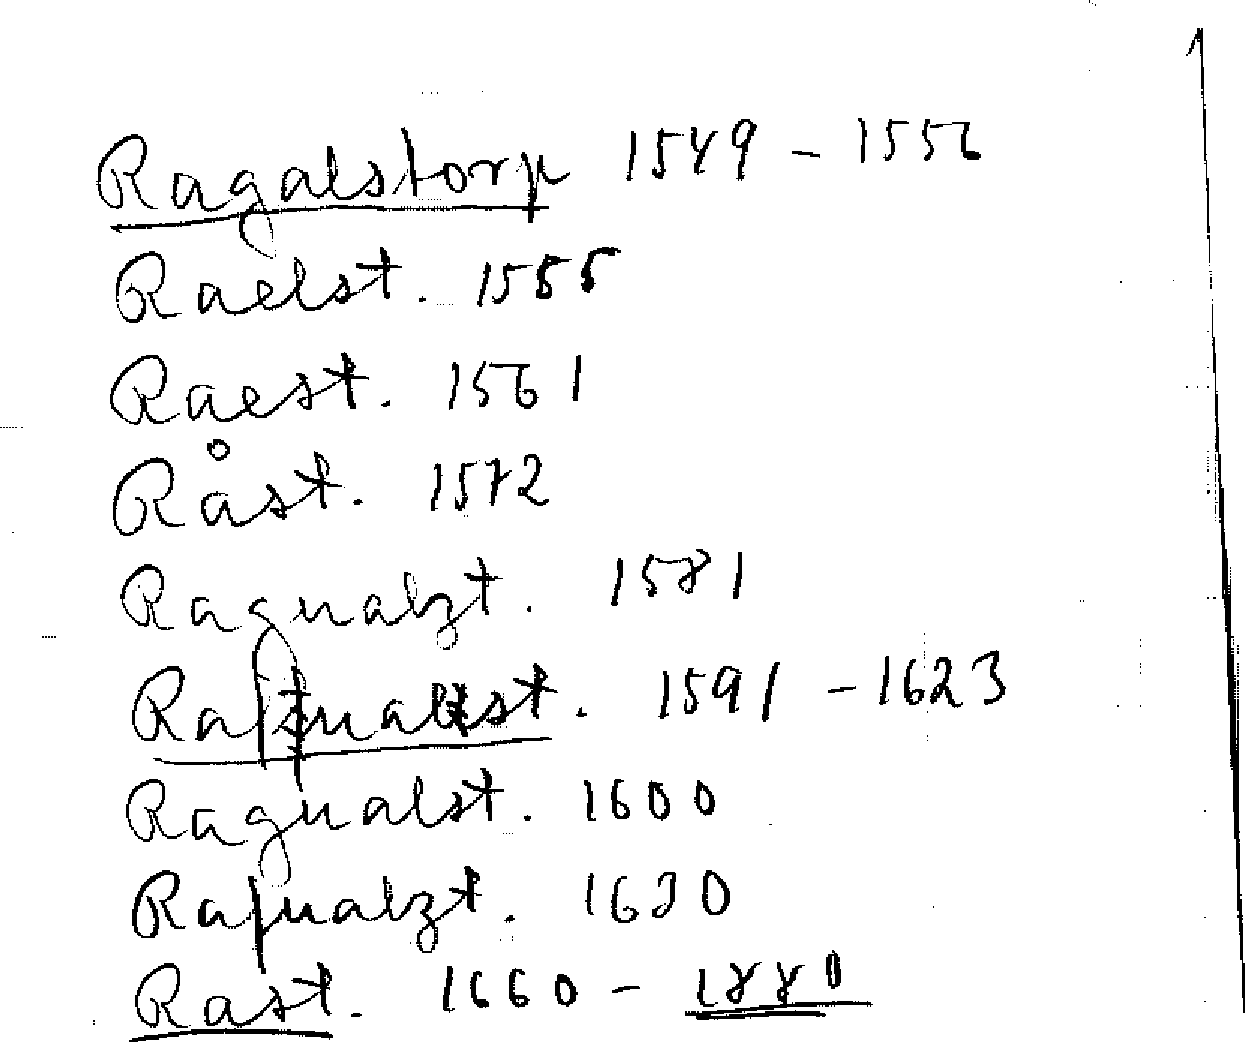 Ragalstorp 1549 - 1556
Raelst. 1555
Raest. 1561
Råst. 1572
Ragualzt. 1581
1591 - 1623
Ragualst. 1600
Rafualzt. 1630
Rast. 1660 - 1880